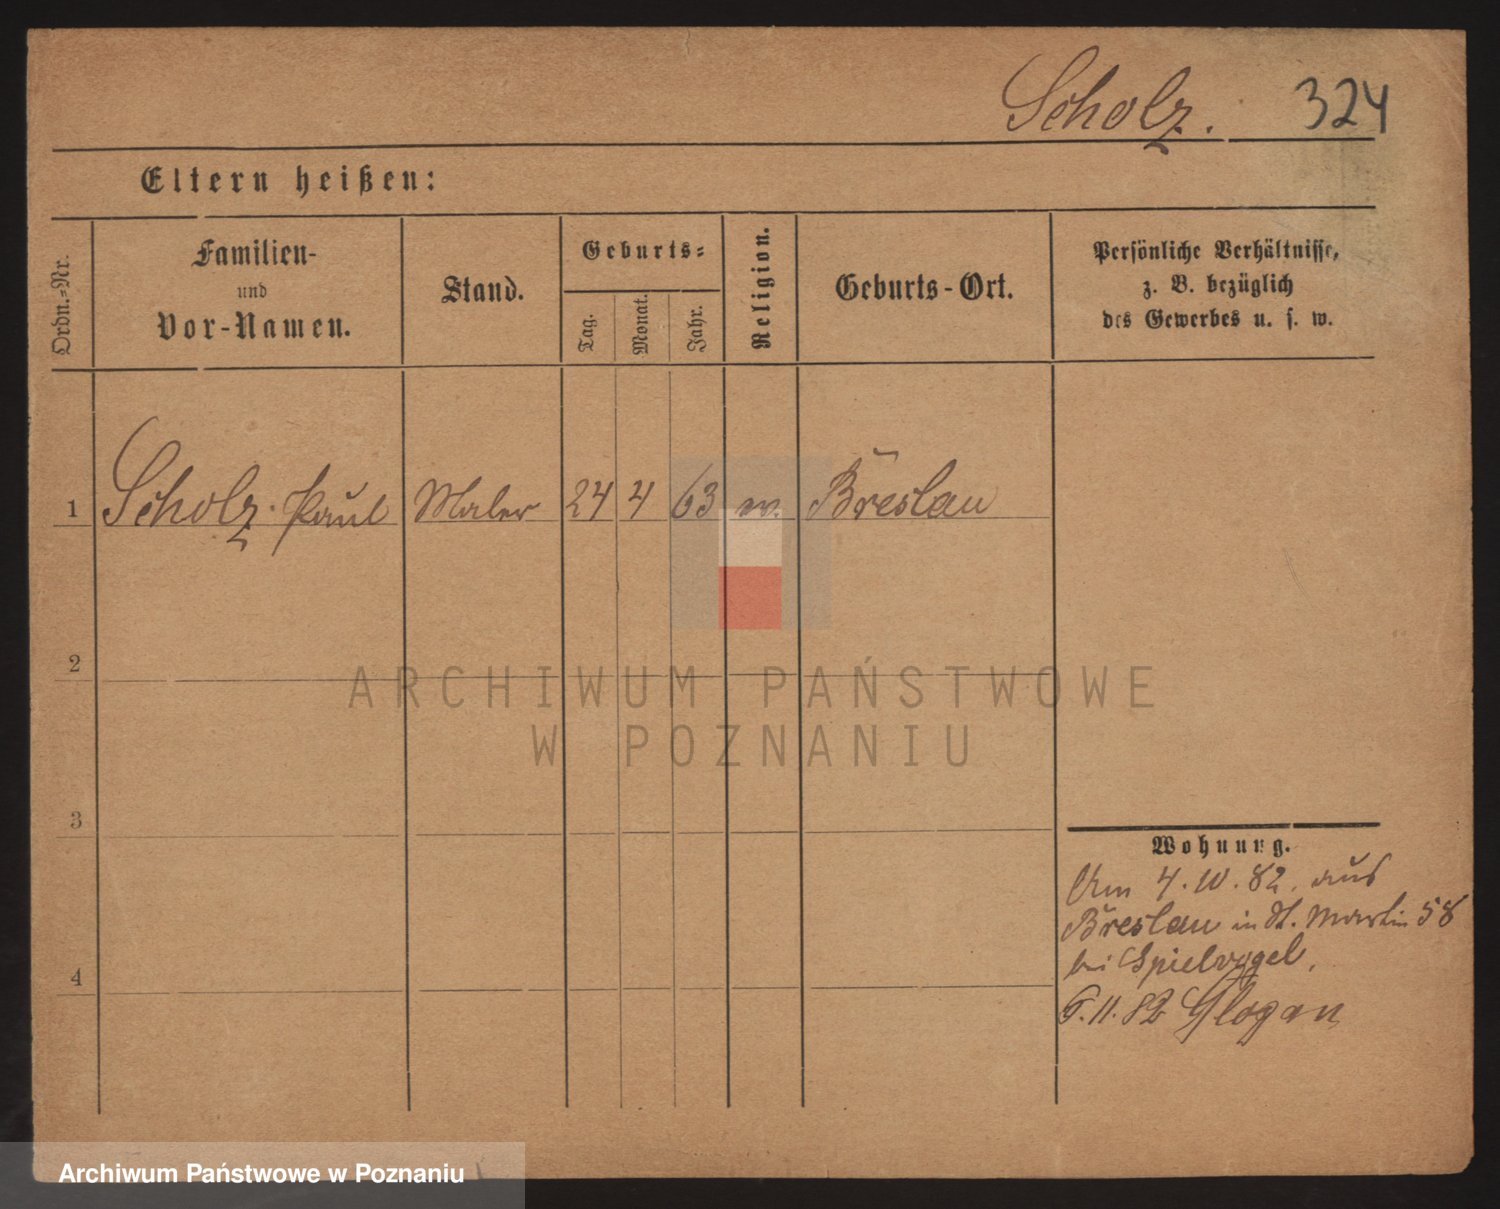 Scholz. 324
Eltern heißen:
Ordn.-Nr.
Familien-
und
Vor-Namen.
Stand.
Geburts-
Tag.
Monat.
Jahr.
Religion.
Geburts-Ort.
Persönliche Verhältnisse,
z. B. bezüglich
des Gewerbes u. s. w.
1 Scholz. Paul Maler 24 4 63 Breslau
2
3
4
Wohnung.
Am 4. 10. 82. aus
Breslau in St. Martin 58
bei Spielvogel.
6. 11. 82 Glogau
ARCHIWUM PAŃSTWOWE
W POZNANIU
Archiwum Państwowe w Poznaniu